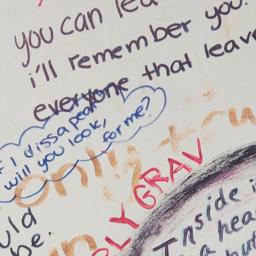 you can lea
i'll remember you.
everyone that leave
If I dissapear
will you look,
for me?
only tru
uld
be.
RLY GRAV
Inside i
a hea
but